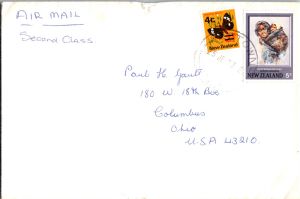 AIR MAIL
Second Class
4c
New Zealand
NEW ZEALAND
Paul H. Gantt
180 W 18th Ave
Columbus
Ohio
USA 43210